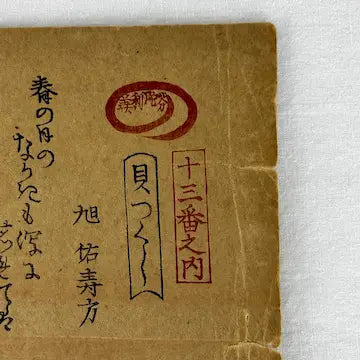 芬陀利華
十三番之内
貝つくし
旭 佑寿方
春の日の
なかきも